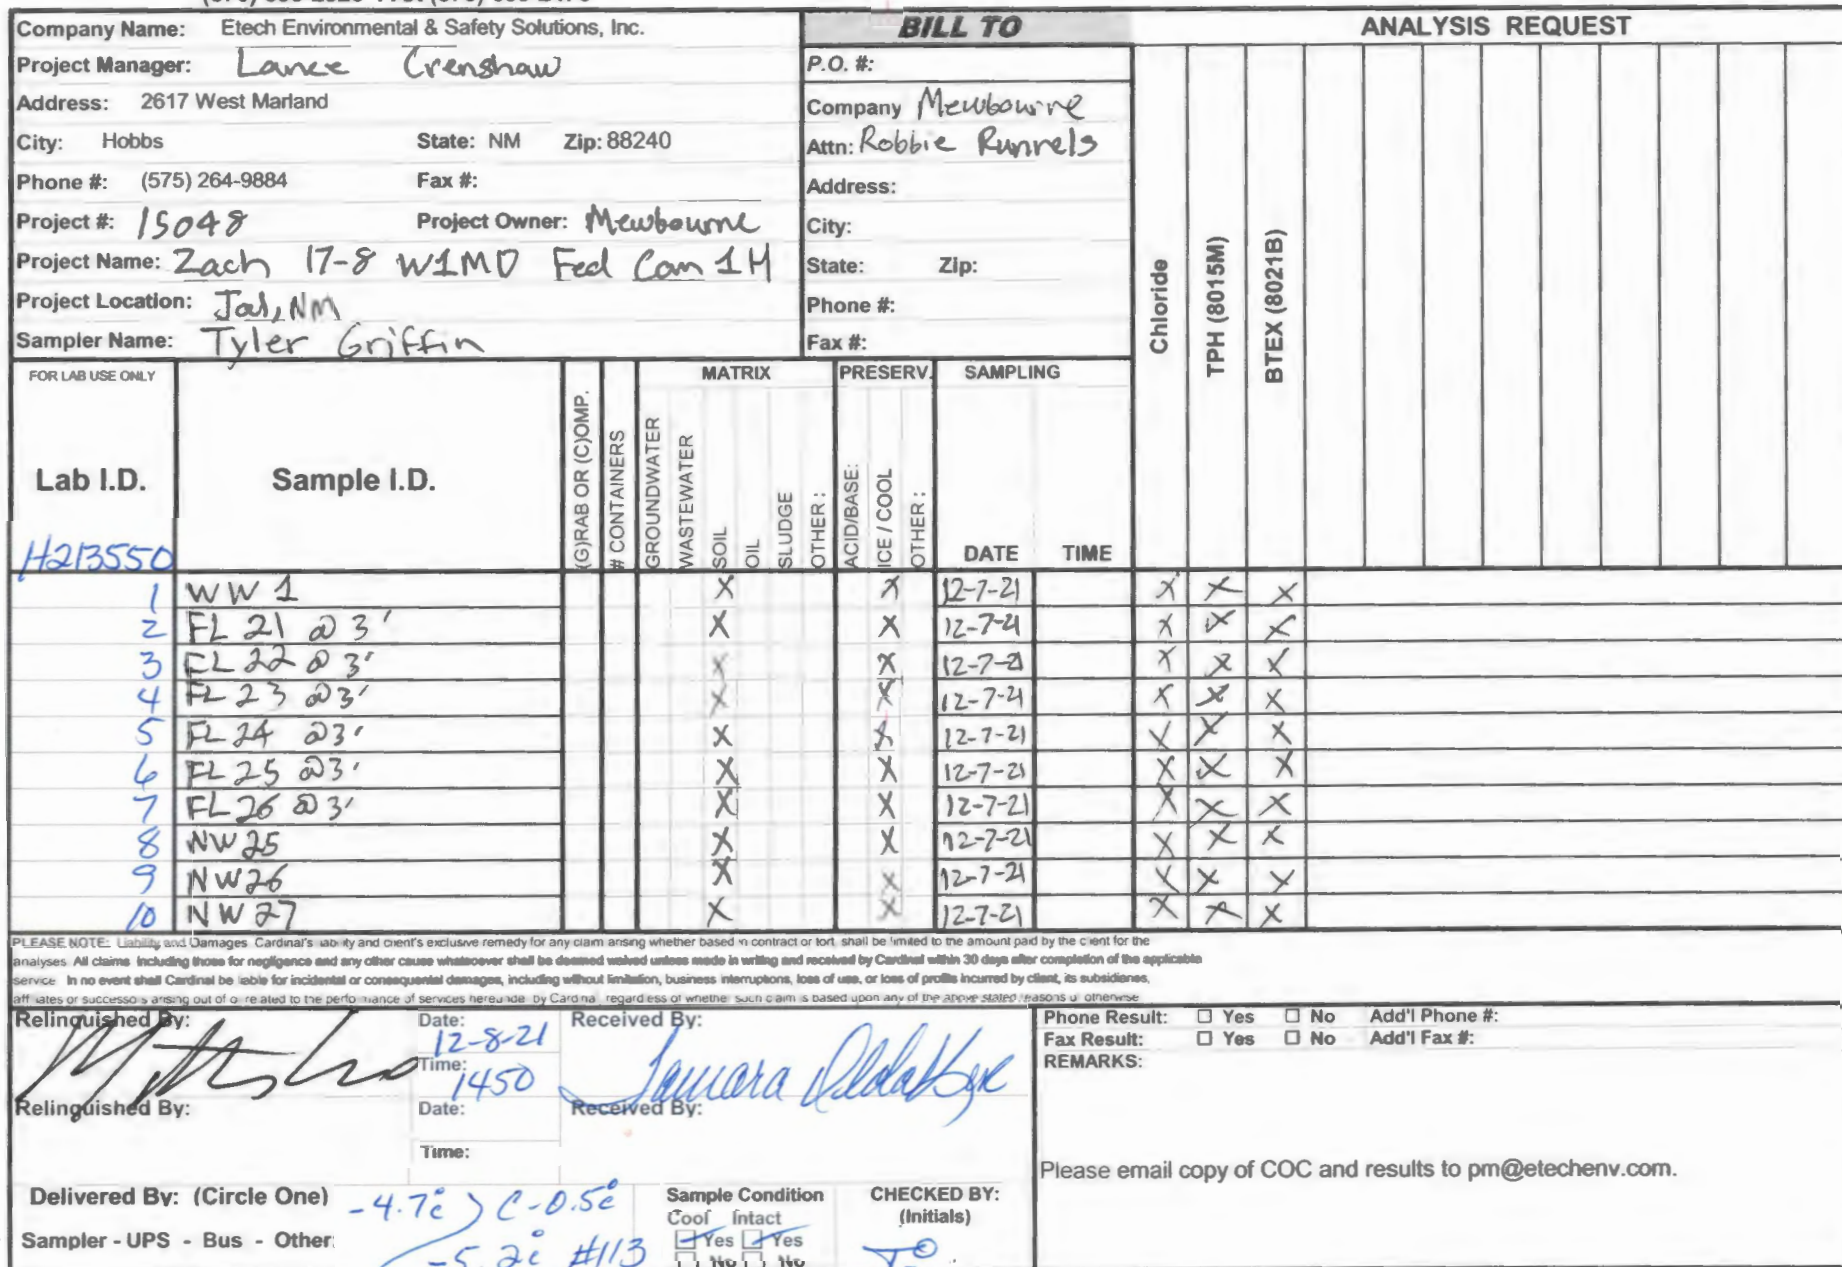 Company Name: Etech Environmental & Safety Solutions, Inc.
BILL TO
ANALYSIS REQUEST
Project Manager: Lance Crenshaw
P.O. #:
Address: 2617 West Marland
Company Mewbourne
City: Hobbs State: NM Zip: 88240
Attn: Robbie Runnels
Phone #: (575) 264-9884 Fax #:
Address:
Project #: 15048 Project Owner: Mewbourne
City:
Project Name: Zach 17-8 W1MD Fed Com 1H
State: Zip:
Project Location: Jal, NM
Phone #:
Sampler Name: Tyler Griffin
Fax #:
Chloride
TPH (8015M)
BTEX (8021B)
FOR LAB USE ONLY
MATRIX PRESERV. SAMPLING
Lab I.D. Sample I.D.
(G)RAB OR (C)OMP.
# CONTAINERS
GROUNDWATER
WASTEWATER
SOIL
OIL
SLUDGE
OTHER :
ACID/BASE:
ICE / COOL
OTHER :
DATE TIME
H213550
1 WW 1 X X 12-7-21 X X X
2 FL 21 @ 3' X X 12-7-21 X X X
3 FL 22 @ 3' X X 12-7-21 X X X
4 FL 23 @3' X X 12-7-21 X X X
5 FL 24 @3' X X 12-7-21 X X X
6 FL 25 @3' X X 12-7-21 X X X
7 FL 26 @3' X X 12-7-21 X X X
8 NW 25 X X 12-7-21 X X X
9 NW26 X X 12-7-21 X X X
10 NW 27 X X 12-7-21 X X X
PLEASE NOTE: Liability and Damages. Cardinal's liability and client's exclusive remedy for any claim arising whether based in contract or tort, shall be limited to the amount paid by the client for the
analyses. All claims including those for negligence and any other cause whatsoever shall be deemed waived unless made in writing and received by Cardinal within 30 days after completion of the applicable
service. In no event shall Cardinal be liable for incidental or consequental damages, including without limitation, business interruptions, loss of use, or loss of profits incurred by client, its subsidiaries,
affiliates or successors arising out of or related to the performance of services hereunder by Cardinal, regardless of whether such claim is based upon any of the above stated reasons or otherwise.
Relinquished By:
Date: 12-8-21
Time: 1450
Received By:
Tamara
Phone Result: Yes No Add'l Phone #:
Fax Result: Yes No Add'l Fax #:
REMARKS:
Relinquished By:
Date:
Time:
Received By:
Please email copy of COC and results to pm@etechenv.com.
Delivered By: (Circle One) -4.7c C-0.5c
Sampler - UPS - Bus - Other: -5.2c #113
Sample Condition
Cool Intact
Yes Yes
No No
CHECKED BY:
(Initials)